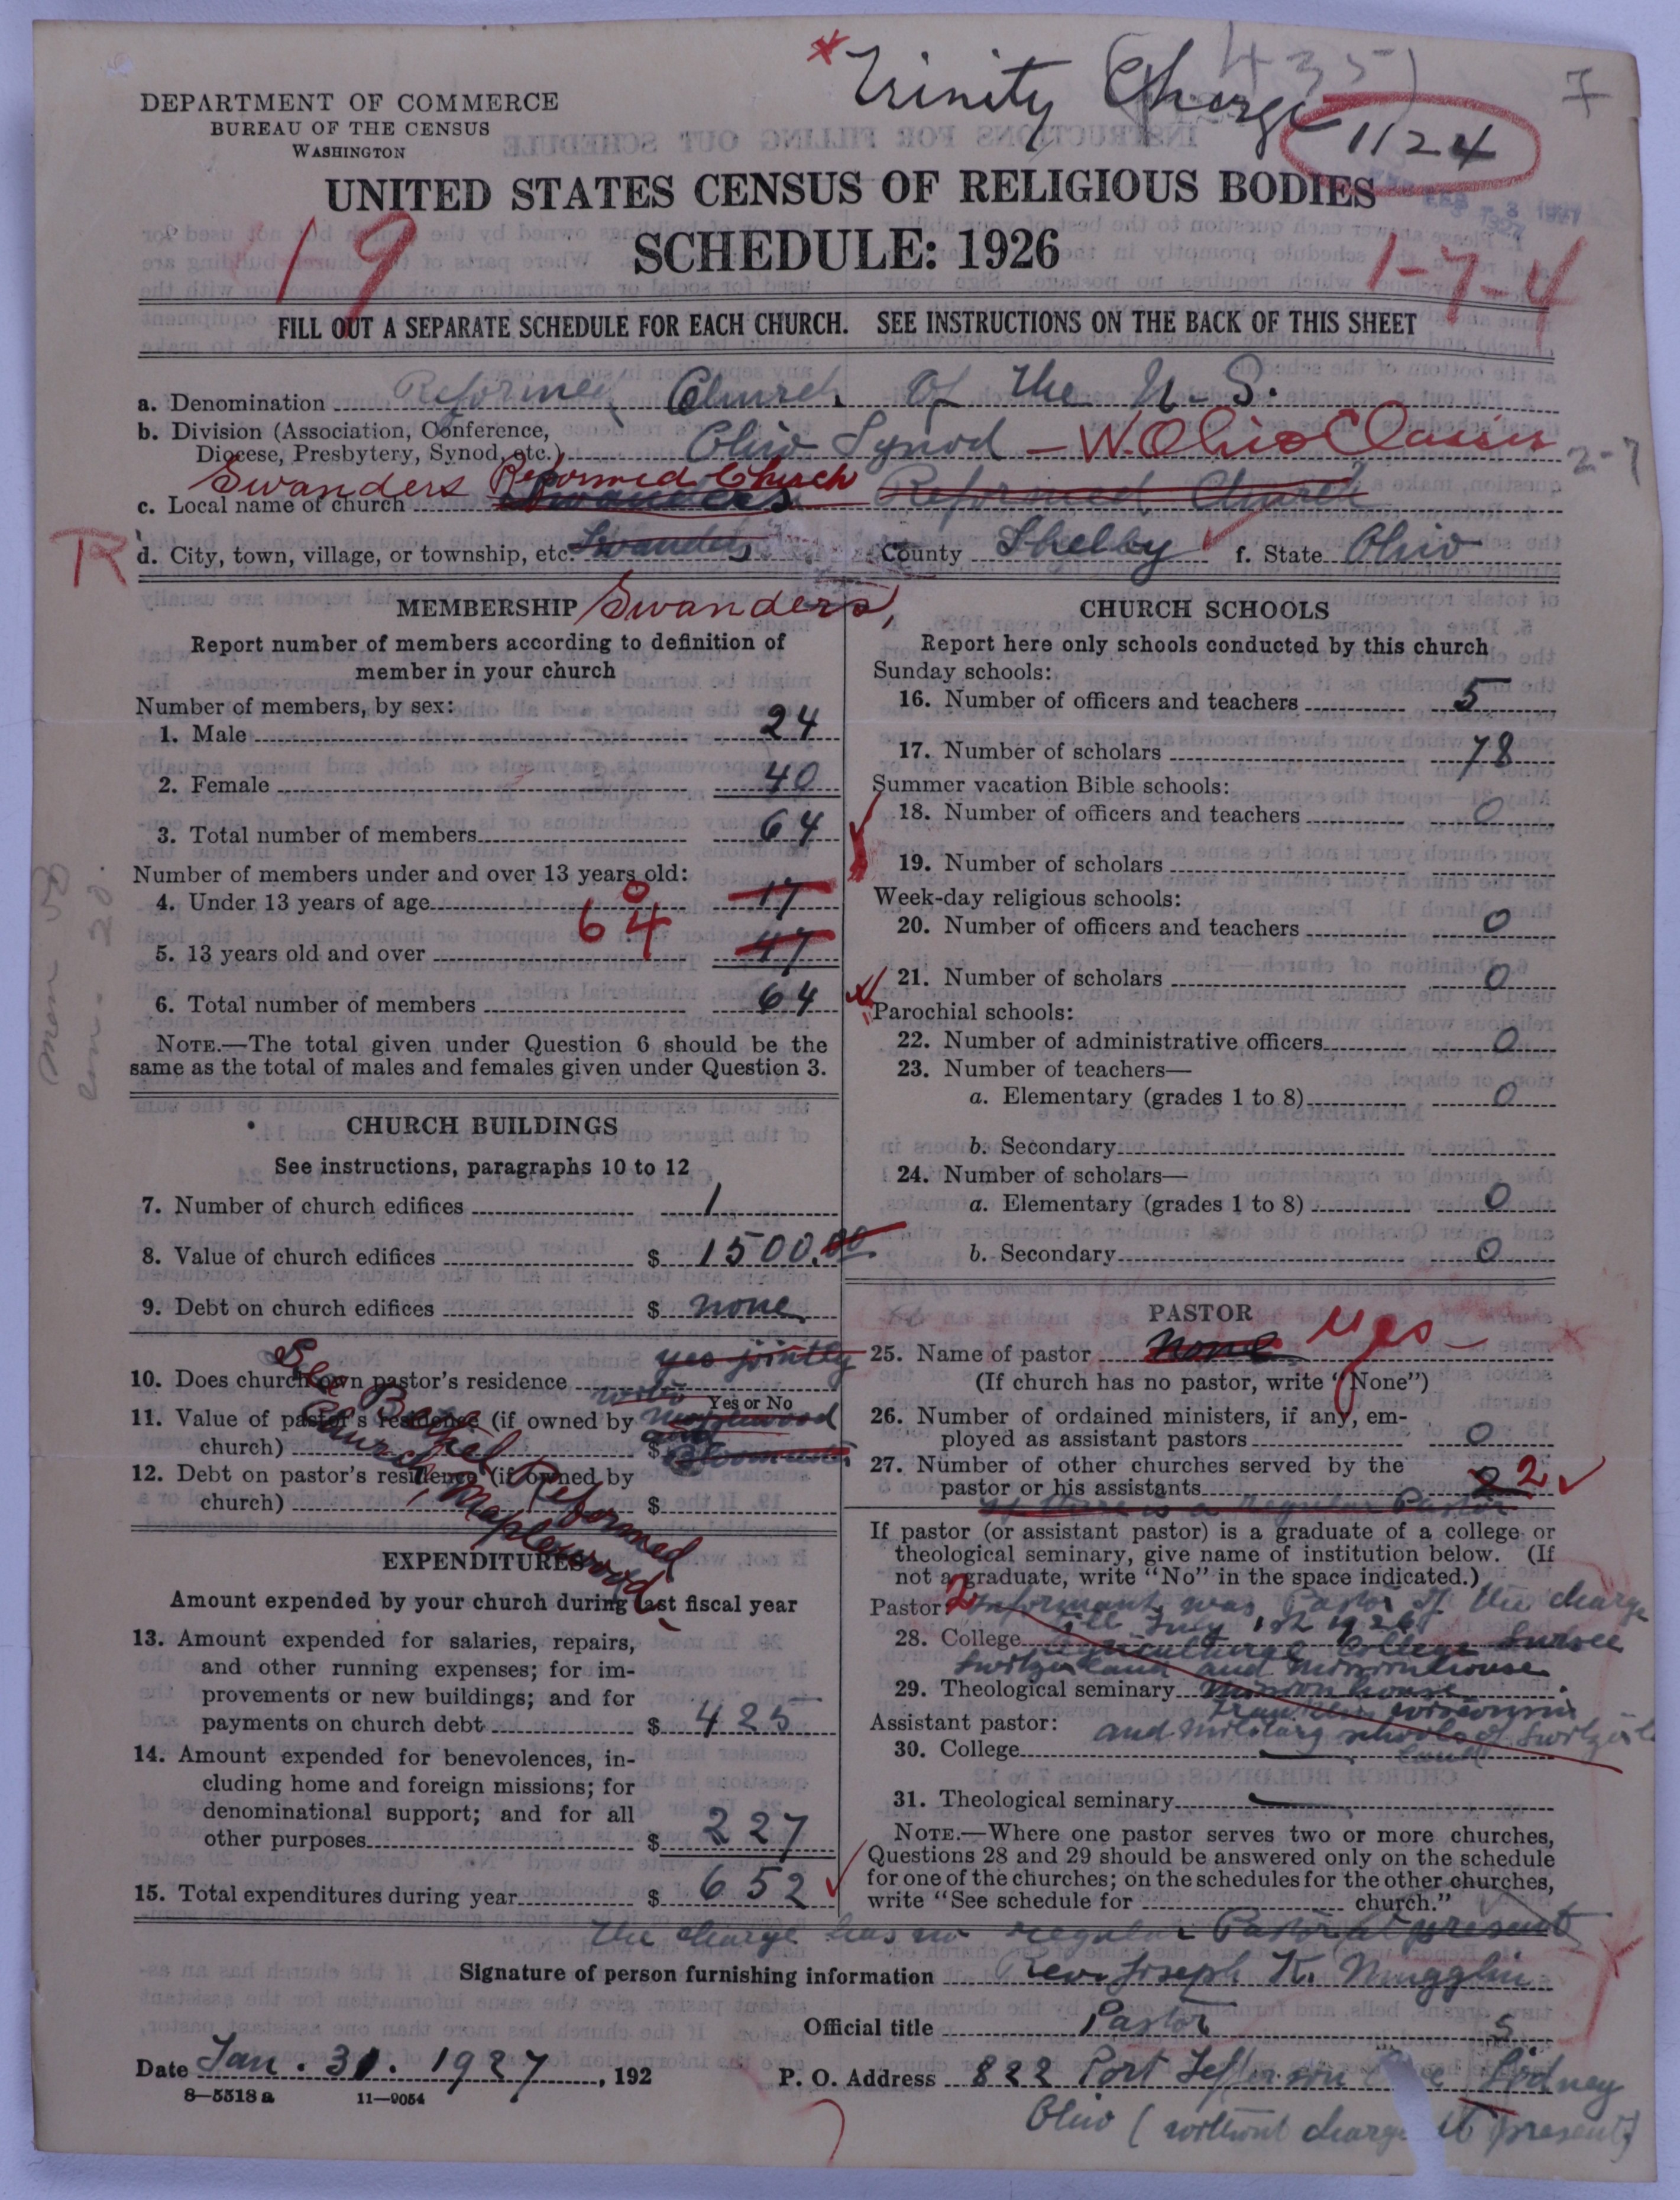 * Trinity Charge
(435)
7
1124
DEPARTMENT OF COMMERCE
BUREAU OF THE CENSUS
WASHINGTON
UNITED STATES CENSUS OF RELIGIOUS BODIES
SCHEDULE: 1926
19
1-7-4
FILL OUT A SEPARATE SCHEDULE FOR EACH CHURCH. SEE INSTRUCTIONS ON THE BACK OF THIS SHEET
a. Denomination Reformed Church of the U. S.
b. Division (Association, Conference,
Diocese, Presbytery, Synod, etc.) Ohio Synod - W. Ohio Classis
2-7
Swanders Reformed Church
c. Local name of church Swanders Reformed Church
R
d. City, town, village, or township, etc. Swanders County Shelby f. State Ohio
MEMBERSHIP Swanders,
Report number of members according to definition of
member in your church
Number of members, by sex:
1. Male 24
2. Female 40
3. Total number of members 64
Number of members under and over 13 years old:
4. Under 13 years of age 0 17
5. 13 years old and over 64 47
6. Total number of members 64
NOTE.—The total given under Question 6 should be the
same as the total of males and females given under Question 3.
CHURCH BUILDINGS
See instructions, paragraphs 10 to 12
7. Number of church edifices 1
8. Value of church edifices $ 1500.00
9. Debt on church edifices $ none
10. Does church own pastor's residence yes jointly
with
Yes or No
11. Value of pastor's residence (if owned by Maplewood
church) $ and
12. Debt on pastor's residence (if owned by
church) $
See Bethel Reformed
Church, Maplewood
EXPENDITURES
Amount expended by your church during last fiscal year
13. Amount expended for salaries, repairs,
and other running expenses; for im-
provements or new buildings; and for
payments on church debt $ 425
14. Amount expended for benevolences, in-
cluding home and foreign missions; for
denominational support; and for all
other purposes $ 227
15. Total expenditures during year $ 652
CHURCH SCHOOLS
Report here only schools conducted by this church
Sunday schools:
16. Number of officers and teachers 5
17. Number of scholars 78
Summer vacation Bible schools:
18. Number of officers and teachers 0
19. Number of scholars
Week-day religious schools:
20. Number of officers and teachers 0
21. Number of scholars 0
Parochial schools:
22. Number of administrative officers 0
23. Number of teachers—
a. Elementary (grades 1 to 8) 0
b. Secondary
24. Number of scholars—
a. Elementary (grades 1 to 8) 0
b. Secondary 0
PASTOR
25. Name of pastor none yes
(If church has no pastor, write "None")
26. Number of ordained ministers, if any, em-
ployed as assistant pastors 0
27. Number of other churches served by the
pastor or his assistants 2 2
if there is a regular Pastor
If pastor (or assistant pastor) is a graduate of a college or
theological seminary, give name of institution below. (If
not a graduate, write "No" in the space indicated.)
Pastor: 2 Informant was Pastor of the charge
till July 1st 1926
28. College Agricultural College Sursee
Switzerland and Missionhouse
29. Theological seminary Mission house
Wisconsin
Assistant pastor: and Military schools of Switzerland
30. College
31. Theological seminary
NOTE.—Where one pastor serves two or more churches,
Questions 28 and 29 should be answered only on the schedule
for one of the churches; on the schedules for the other churches,
write "See schedule for church."
the charge has no regular Pastor at present
Signature of person furnishing information Rev. Joseph K. Mugglin
Official title Pastor 5
Date Jan. 31. 1927, 192
P. O. Address 822 Port Jefferson Sidney
Ohio (without charge at present)
8—5518 a 11—9054